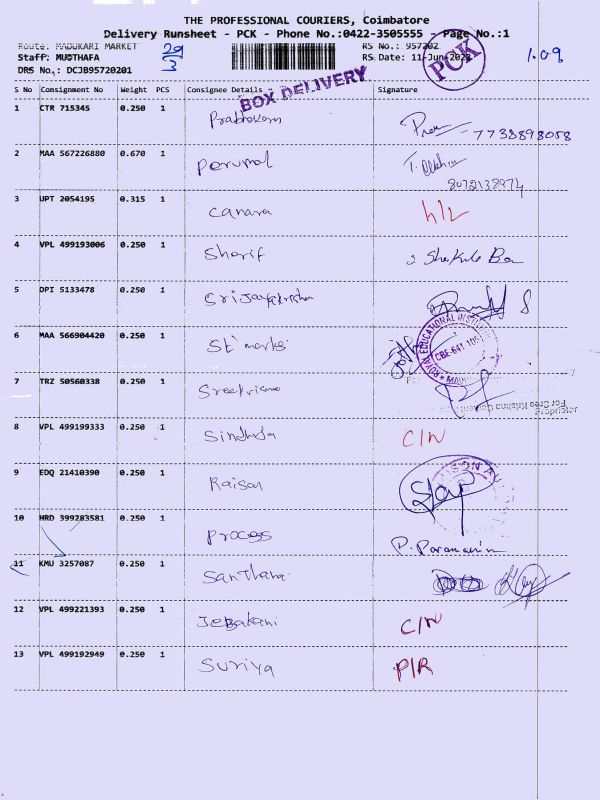 THE PROFESSIONAL COURIERS, Coimbatore
Delivery Runsheet - PCK - Phone No.:0422-3505555 - Page No.:1
Route: MADUKARI MARKET 29/3 RS No.: 957202 PCK 1.09
Staff: MUSTHAFA RS Date: 11-Jun-2022
DRS No.: DCJB95720201
BOX DELIVERY
S No Consignment No Weight PCS Consignee Details Signature
1 CTR 715345 0.250 1 Prabhakaran 7738898058
2 MAA 567226880 0.670 1 perumal 8072138974
3 UPT 2054195 0.315 1 canara h/L
4 VPL 499193006 0.250 1 Sharif
5 DPI 5133478 0.250 1 Srijayakrishna
6 MAA 566904420 0.250 1 St marks ROYAL EDUCATIONAL CBE-641 105
7 TRZ 50560338 0.250 1 Sreekrisna For Sree Krishna
8 VPL 499199333 0.250 1 Sindhuja C/N
9 EDQ 21410390 0.250 1 Raison
10 HRD 399283581 0.250 1 process
11 KMU 3257087 0.250 1 Santhana
12 VPL 499221393 0.250 1 Jebakani C/N
13 VPL 499192949 0.250 1 Suriya P/R